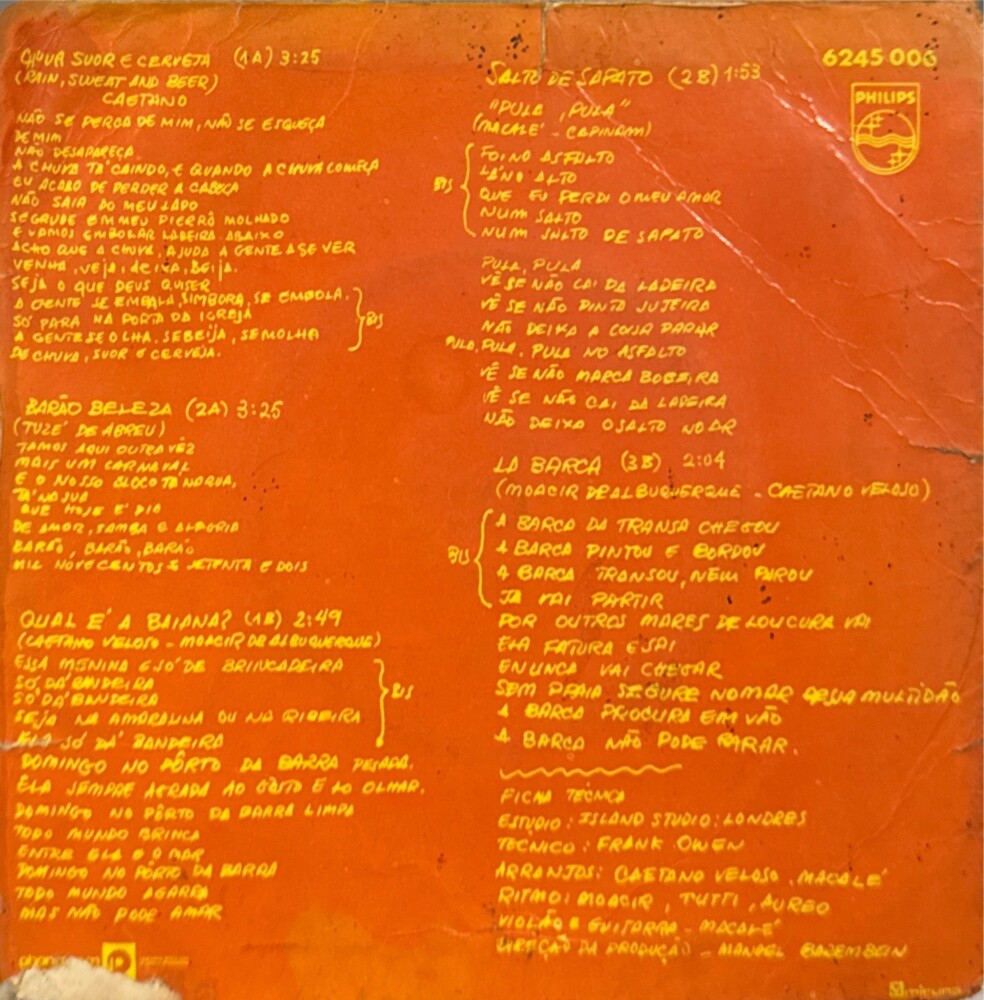 CHUVA SUOR E CERVEJA (1A) 3:25
(RAIN, SWEAT AND BEER)
CAETANO
NÃO SE PERCA DE MIM, NÃO SE ESQUEÇA
DE MIM
NÃO DESAPAREÇA
A CHUVA TA' CAINDO, E QUANDO A CHUVA COMEÇA
EU ACABO DE PERDER A CABEÇA
NÃO SAIA DO MEU LADO
SEGURE O MEU PIERRÔ MOLHADO
E VAMOS EMBOLAR LADEIRA ABAIXO
ACHO QUE A CHUVA, AJUDA A GENTE A SE VER
VENHA, VEJA, DEIXA, BEIJA.
SEJA O QUE DEUS QUISER
A GENTE SE EMBALA, SIMBORA, SE EMBOLA.
SÓ PARA NA PORTA DA IGREJA
BIS
A GENTE SE OLHA, SE BEIJA, SE MOLHA
DE CHUVA, SUOR E CERVEJA.
BARÃO BELEZA (2A) 3:25
(TUZE' DE ABREU)
TAMOS AQUI OUTRA VÊZ
MAIS UM CARNAVAL
E O NOSSO BLOCO TÁ NA RUA,
TÁ NA SUA
QUE HOJE É DIA
DE AMOR, SAMBA E ALEGRIA
BARÃO, BARÃO, BARÃO
MIL NOVECENTOS E SETENTA E DOIS
QUAL E' A BAIANA? (1B) 2:49
(CAETANO VELOSO - MOACIR DE ALBUQUERQUE)
ESSA MENINA E SO' DE BRINCADEIRA
SO' DA' BANDEIRA
SO' DA' BANDEIRA
BIS
SEJA NA AMARALINA OU NA RIBEIRA
ELA SÓ DA' BANDEIRA
DOMINGO NO PÔRTO DA BARRA PESADA.
ELA SEMPRE AGRADA AO GÔSTO E AO OLHAR.
DOMINGO NO PÔRTO DA BARRA LIMPA
TODO MUNDO BRINCA
ENTRE ELA E O MAR
DOMINGO NO PÔRTO DA BARRA
TODO MUNDO AGARRA
MAS NÃO PODE AMAR
6245 006
PHILIPS
SALTO DE SAPATO (2B) 1:53
"PULA, PULA"
(MACALE' - CAPINAM)
FOI NO ASFALTO
LÁ NO ALTO
BIS
QUE EU PERDI O MEU AMOR
NUM SALTO
NUM SALTO DE SAPATO
PULA, PULA
VÊ SE NÃO CAI DA LADEIRA
VÊ SE NÃO PINTA SUJEIRA
NÃO DEIXA A COISA PARAR
PULA, PULA, PULA NO ASFALTO
VÊ SE NÃO MARCA BOBEIRA
VÊ SE NÃO CAI DA LADEIRA
NÃO DEIXA O SALTO NO AR
LA BARCA (3B) 2:04
(MOACIR DE ALBUQUERQUE - CAETANO VELOSO)
A BARCA DA TRANSA CHEGOU
A BARCA PINTOU E BORDOU
BIS
A BARCA TRANSOU, NEM PAROU
JA VAI PARTIR
POR OUTROS MARES DE LOUCURA VAI
ELA FATURA E SAI
E NUNCA VAI CHEGAR
SEM PRAIA SEGURE NO MAR DESSA MULTIDÃO
A BARCA PROCURA EM VÃO
A BARCA NÃO PODE PARAR.
FICHA TECNICA
ESTUDIO: ISLAND STUDIO: LONDRES
TECNICO: FRANK OWEN
ARRANJOS: CAETANO VELOSO, MACALE'
RITMO: MOACIR, TUTTI, AUREO
VIOLÃO E GUITARRA - MACALÉ
DIREÇÃO DA PRODUÇÃO - MANOEL BAREMBEIN